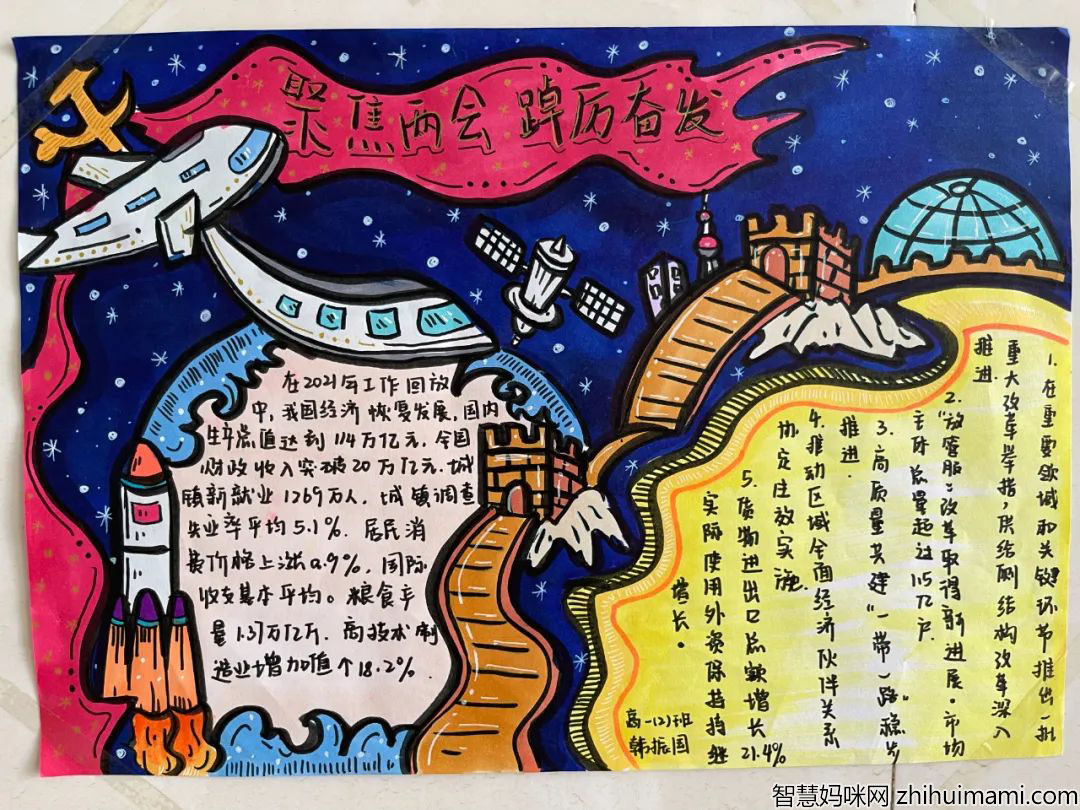 聚焦两会 踔厉奋发
在2021年工作回放
中,我国经济恢复发展,国内
生产总值达到114万亿元.全国
财政收入突破20万亿元.城
镇新就业1269万人,城镇调查
失业率平均5.1%.居民消
费价格上涨0.9%,国际
收支基本平均。粮食产
量1.37万亿斤.高技术制
造业增加值个18.2%.
1.在重要领域和关键环节推出一批
重大改革举措,供给侧结构改革深入
推进
2."放管服"改革取得新进展.市场
主体总量超过1.5亿户.
3.高质量共建"一带一路"稳步
推进
4.推动区域全面经济伙伴关系
协定生效实施
5.货物进出口总额增长21.4%
实际使用外资保持持继
增长.
高一(2)班
韩振国
智慧妈咪网 zhihuimami.com